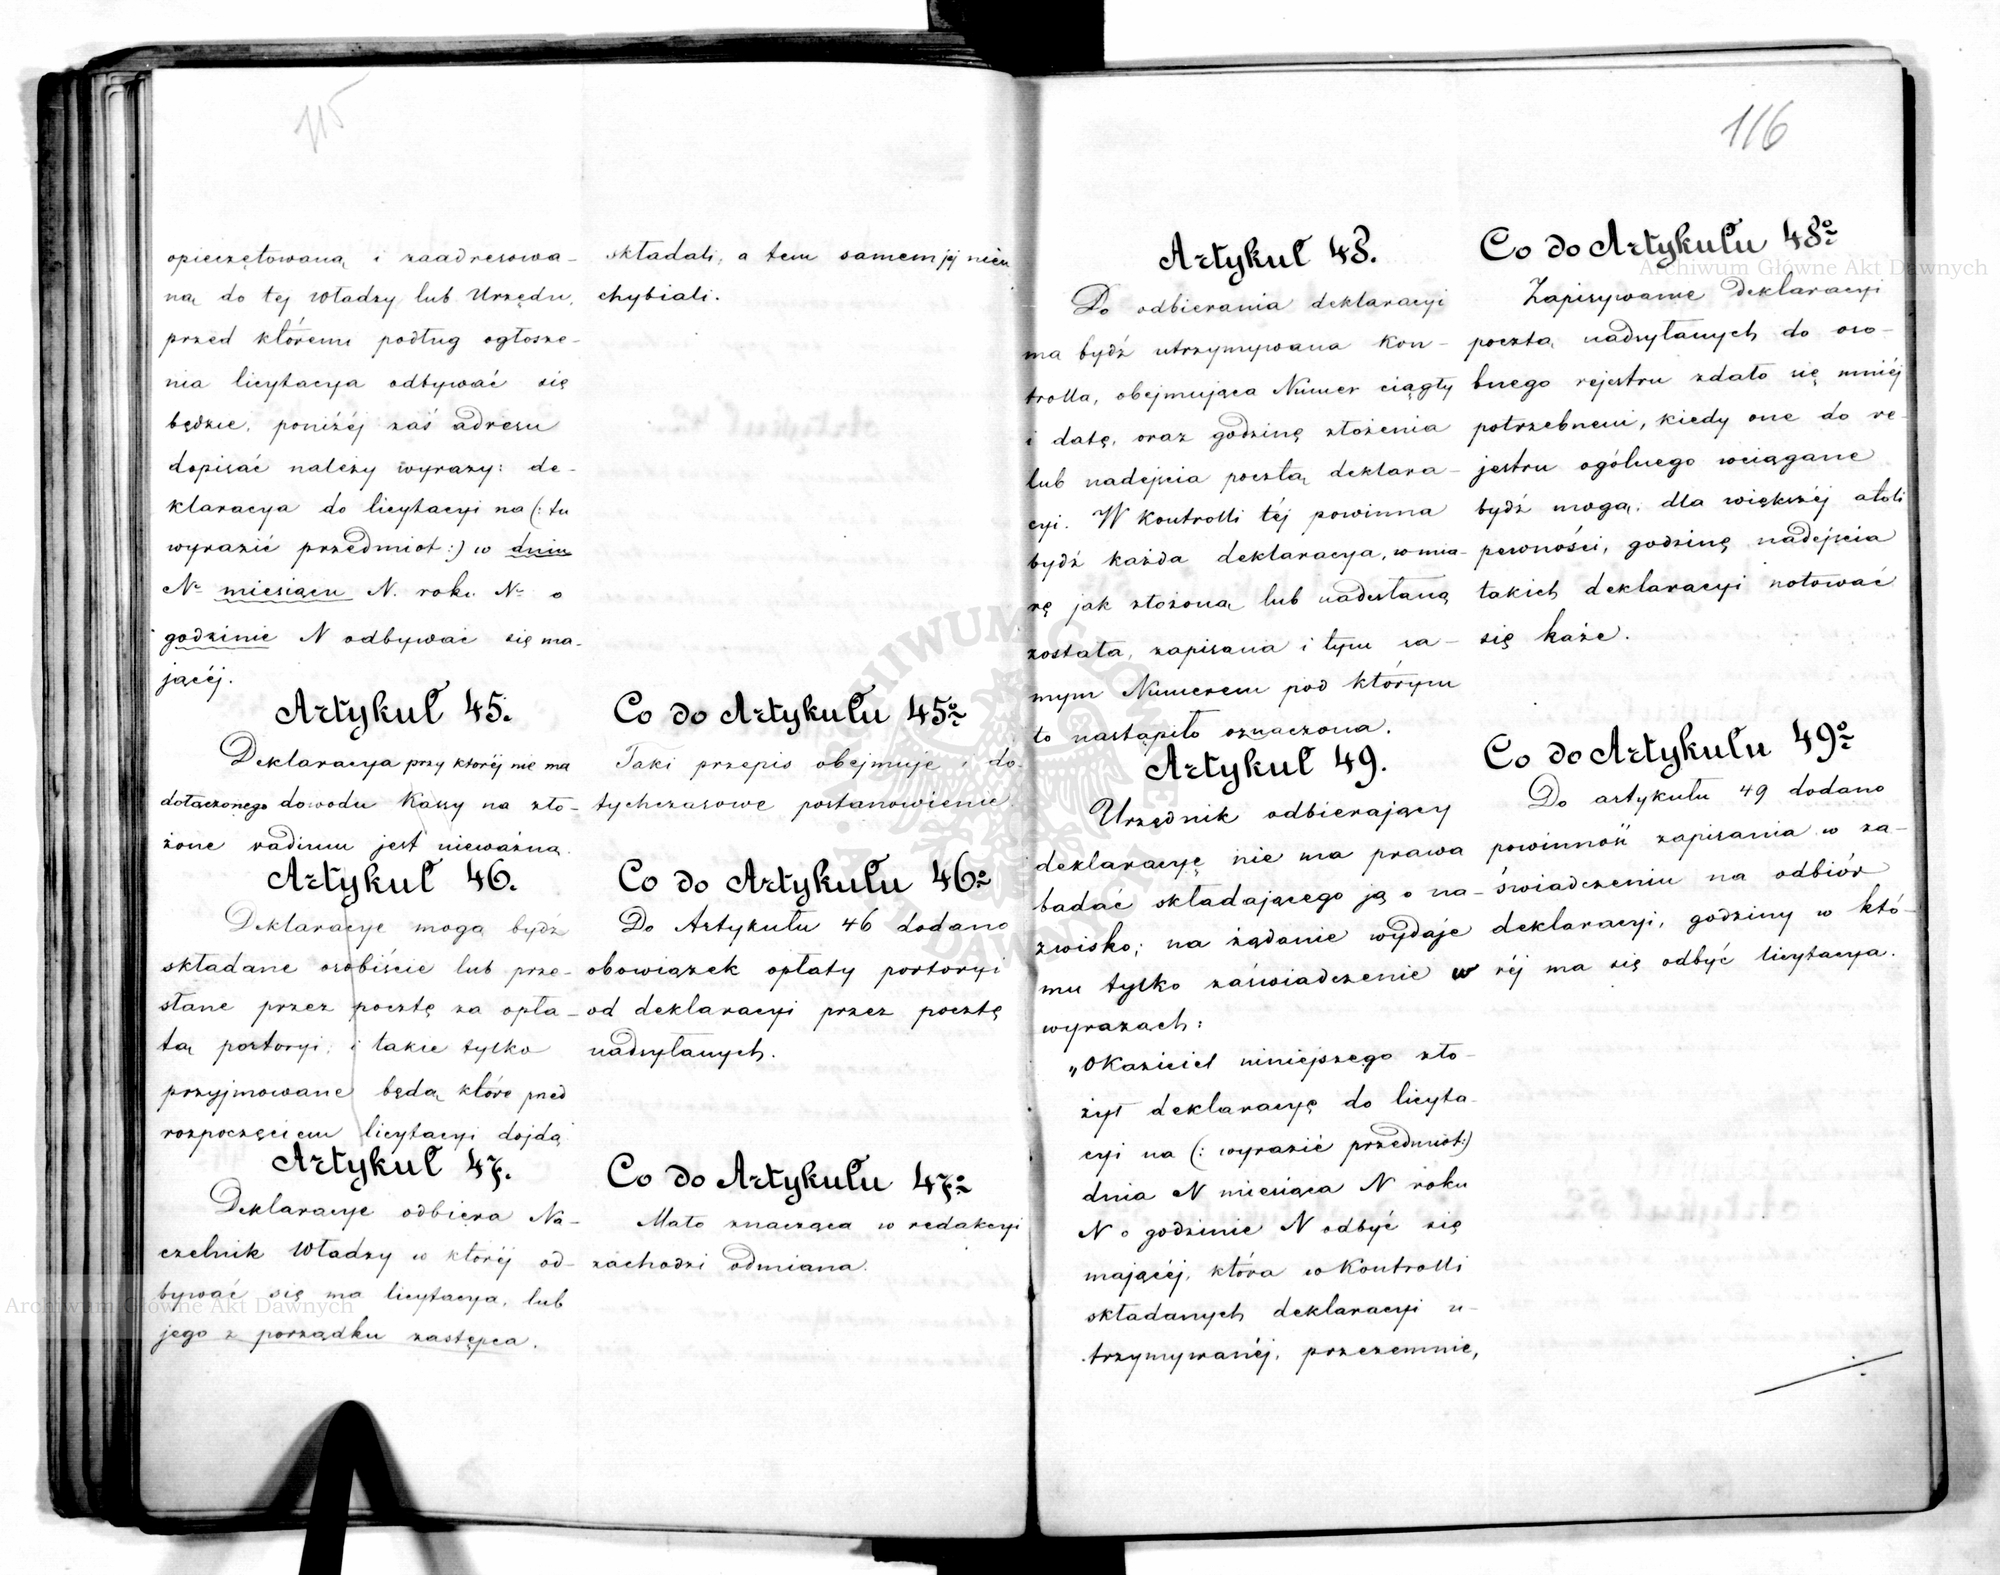 115
opieczętowaną i zaadresowa-
ną do tej Władzy lub Urzędu,
przed któremi podług ogłosze-
nia licytacya odbywać się
będzie, poniżéj zaś adresu
dopisać należy wyrazy: de-
klaracya do licytacyi na (: tu
wyrazić przedmiot :) w dniu
N. miesiącu N. roku N. o
godzinie N odbywać się ma-
jącéj.
Artykuł 45.
Deklaracya przy któréj nie ma
dołączonego dowodu Kassy na zło-
żone vadium jest nieważną.
Artykuł 46.
Deklaracye mogą bydź
składane osobiście lub prze-
słane przez pocztę za opła-
tą portoryi, i takie tylko
przyjmowane będą które przed
rozpoczęciem licytacyi dojdą
Artykuł 47.
Deklaracye odbiera Na-
czelnik Władzy w któréj od-
bywać się ma licytacya, lub
jego z porządku zastępca.
składali, a tem samem jéj nieu
chybiali.
Co do Artykułu 45o
Taki przepis obejmuje i do-
tychczasowe postanowienie.
Co do Artykułu 46o
Do Artykułu 46 dodano
obowiązek opłaty portoryi
od deklaracyi przez pocztę
nadsyłanych.
Co do Artykułu 47o
Mało znacząca w redakcyi
zachodzi odmiana.
116
Artykuł 48.
Do odbierania deklaracyi
ma bydź utrzymywana Kon-
trolla, obejmująca Numer ciągły
i datę, oraz godzinę złożenia
lub nadejścia pocztą deklara-
cyi. W Kontrolli téj powinna
bydź każda deklaracya, w mia-
rę jak złożoną lub nadesłaną
została, zapisana i tym sa-
mym Numerem pod którym
to nastąpiło oznaczona.
Artykuł 49.
Urzędnik odbierający
deklaracyę nie ma prawa
badać składającego ją o na-
zwisko; na żądanie wydaje
mu tylko zaświadczenie w
wyrazach:
„Okaziciel niniejszego zło-
żył deklaracyę do licyta-
cyi na (: wyrazić przedmiot:)
dnia N miesiąca N roku
N o godzinie N odbyć się
mającéj, która w Kontrolli
składanych deklaracyi u-
trzymywanéj, przezemnie,
Co do Artykułu 48o
Zapisywanie deklaracyi
pocztą nadsyłanych do oso-
bnego rejestru zdało się mniéj
potrzebnem, kiedy one do re-
jestru ogólnego wciągane
bydź mogą; dla większéj atoli
pewności, godzinę nadejścia
takich deklaracyi notować
się każe.
Co do Artykułu 49o
Do artykułu 49 dodano
powinność zapisania w za-
świadczeniu na odbiór
deklaracyi, godziny w któ-
réj ma się odbyć licytacya.
Archiwum Główne Akt Dawnych
Archiwum Główne Akt Dawnych
ARCHIWUM GŁÓWNE AKT DAWNYCH